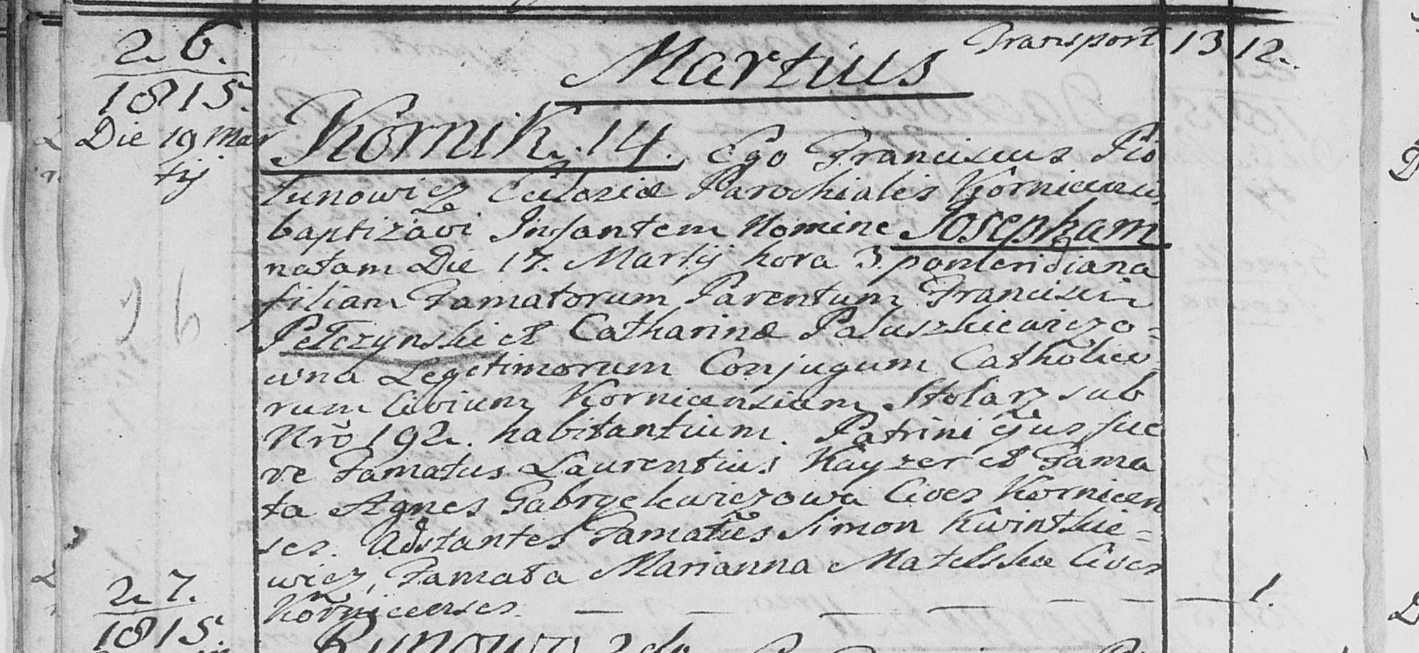 Transport 13 12.
Martius
26.
1815.
Die 19 Mar
tij
Kornik. 14. Ego Franciscus Pio
tunowicz Ecclesiæ Parochialis
baptizavi Infantem Nomine Josepham
natam Die 17. Martij hora 3 pomeridiana
filiam Famatorum Parentum Francisci
Pełczynski et Catharinæ Paluszkiewiczo-
wna Legitimorum Conjugum Catholico
rum Civium Kornicensium Stolarz sub
Nro 192. habitantium. Patrini ejus fue
re Famatus Laurentius Kayzer et Fama
ta Agnes Gabryelewiczowa Cives Kornicen
ses. Adstantes Famatus Simon Kwintkie-
wicz, Famata Marianna Matelska Cives
Kornicenses. 1.
26
27.
1815.
Runowo 2do